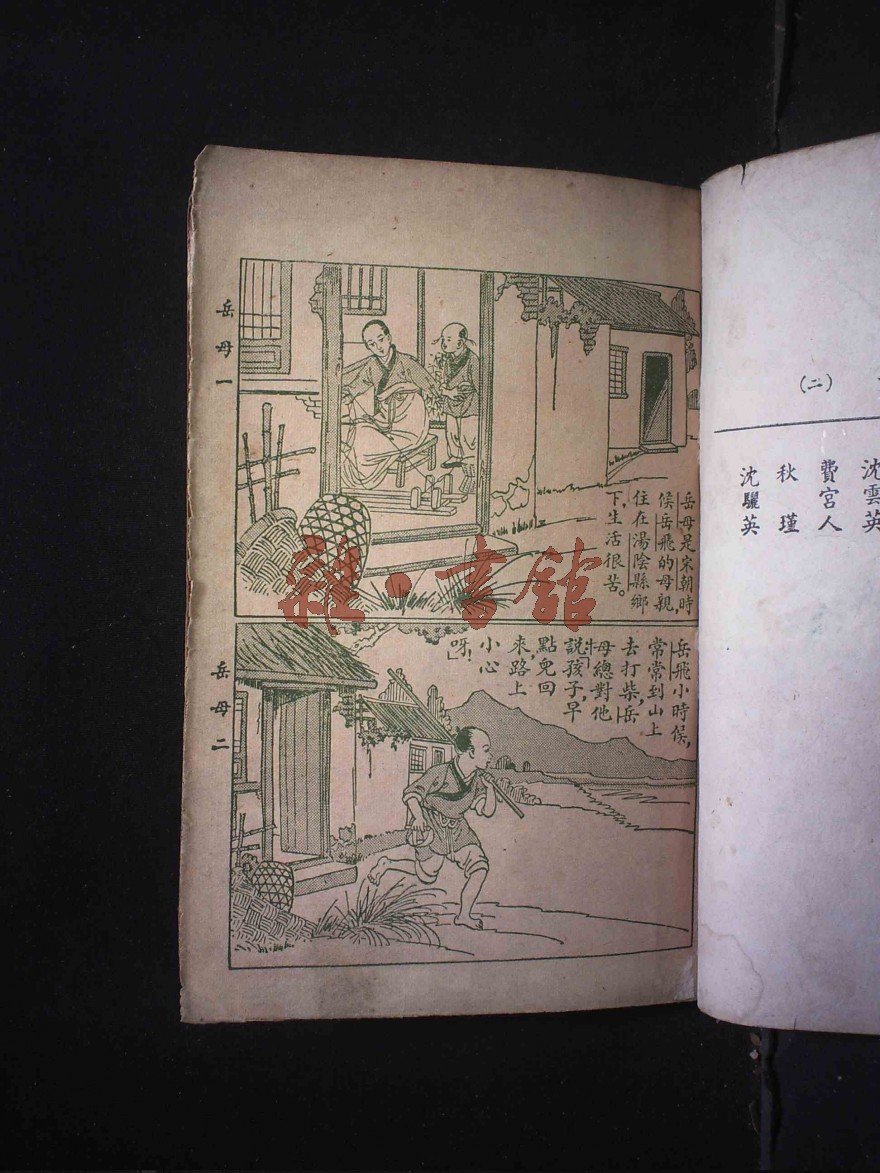 岳母一
岳母是宋朝時
候岳飛的母親，
住在湯陰縣鄉
下，生活很苦。
岳母二
岳飛小時候，
常常到山上
去打柴，岳
母總對他
說：「孩子，早
點兒回
來，路上
小心
呀！」
雜·書館
（二）
沈雲英
費宮人
秋瑾
沈驪英